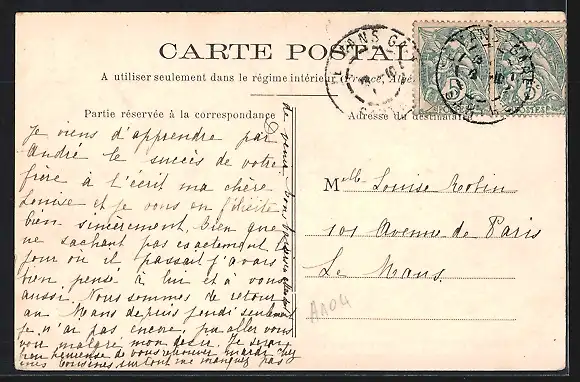 CARTE POSTALE
A utiliser seulement dans le régime intérieur (France, Algérie
Partie réservée à la correspondance
Adresse du destinataire
Je viens d'apprendre par
André le succès de votre
frère à l'écrit ma chère
Louise et je vous en félicite
bien sincèrement, bien que
ne sachant pas exactement le
jour où il passait j'avais
bien pensé à lui et à vous
aussi. Nous sommes de retour
au Mans depuis jeudi seulement
je n'ai pas encore pu aller vous
voir malgré mon désir. Je serai
bien heureuse de vous retrouver mardi chez
mes cousines surtout ne manquez pas
de venir
Melle Louise
101 Avenue de Paris
Le Mans.
A104
LE MANS GARE
LE MANS GARE
5